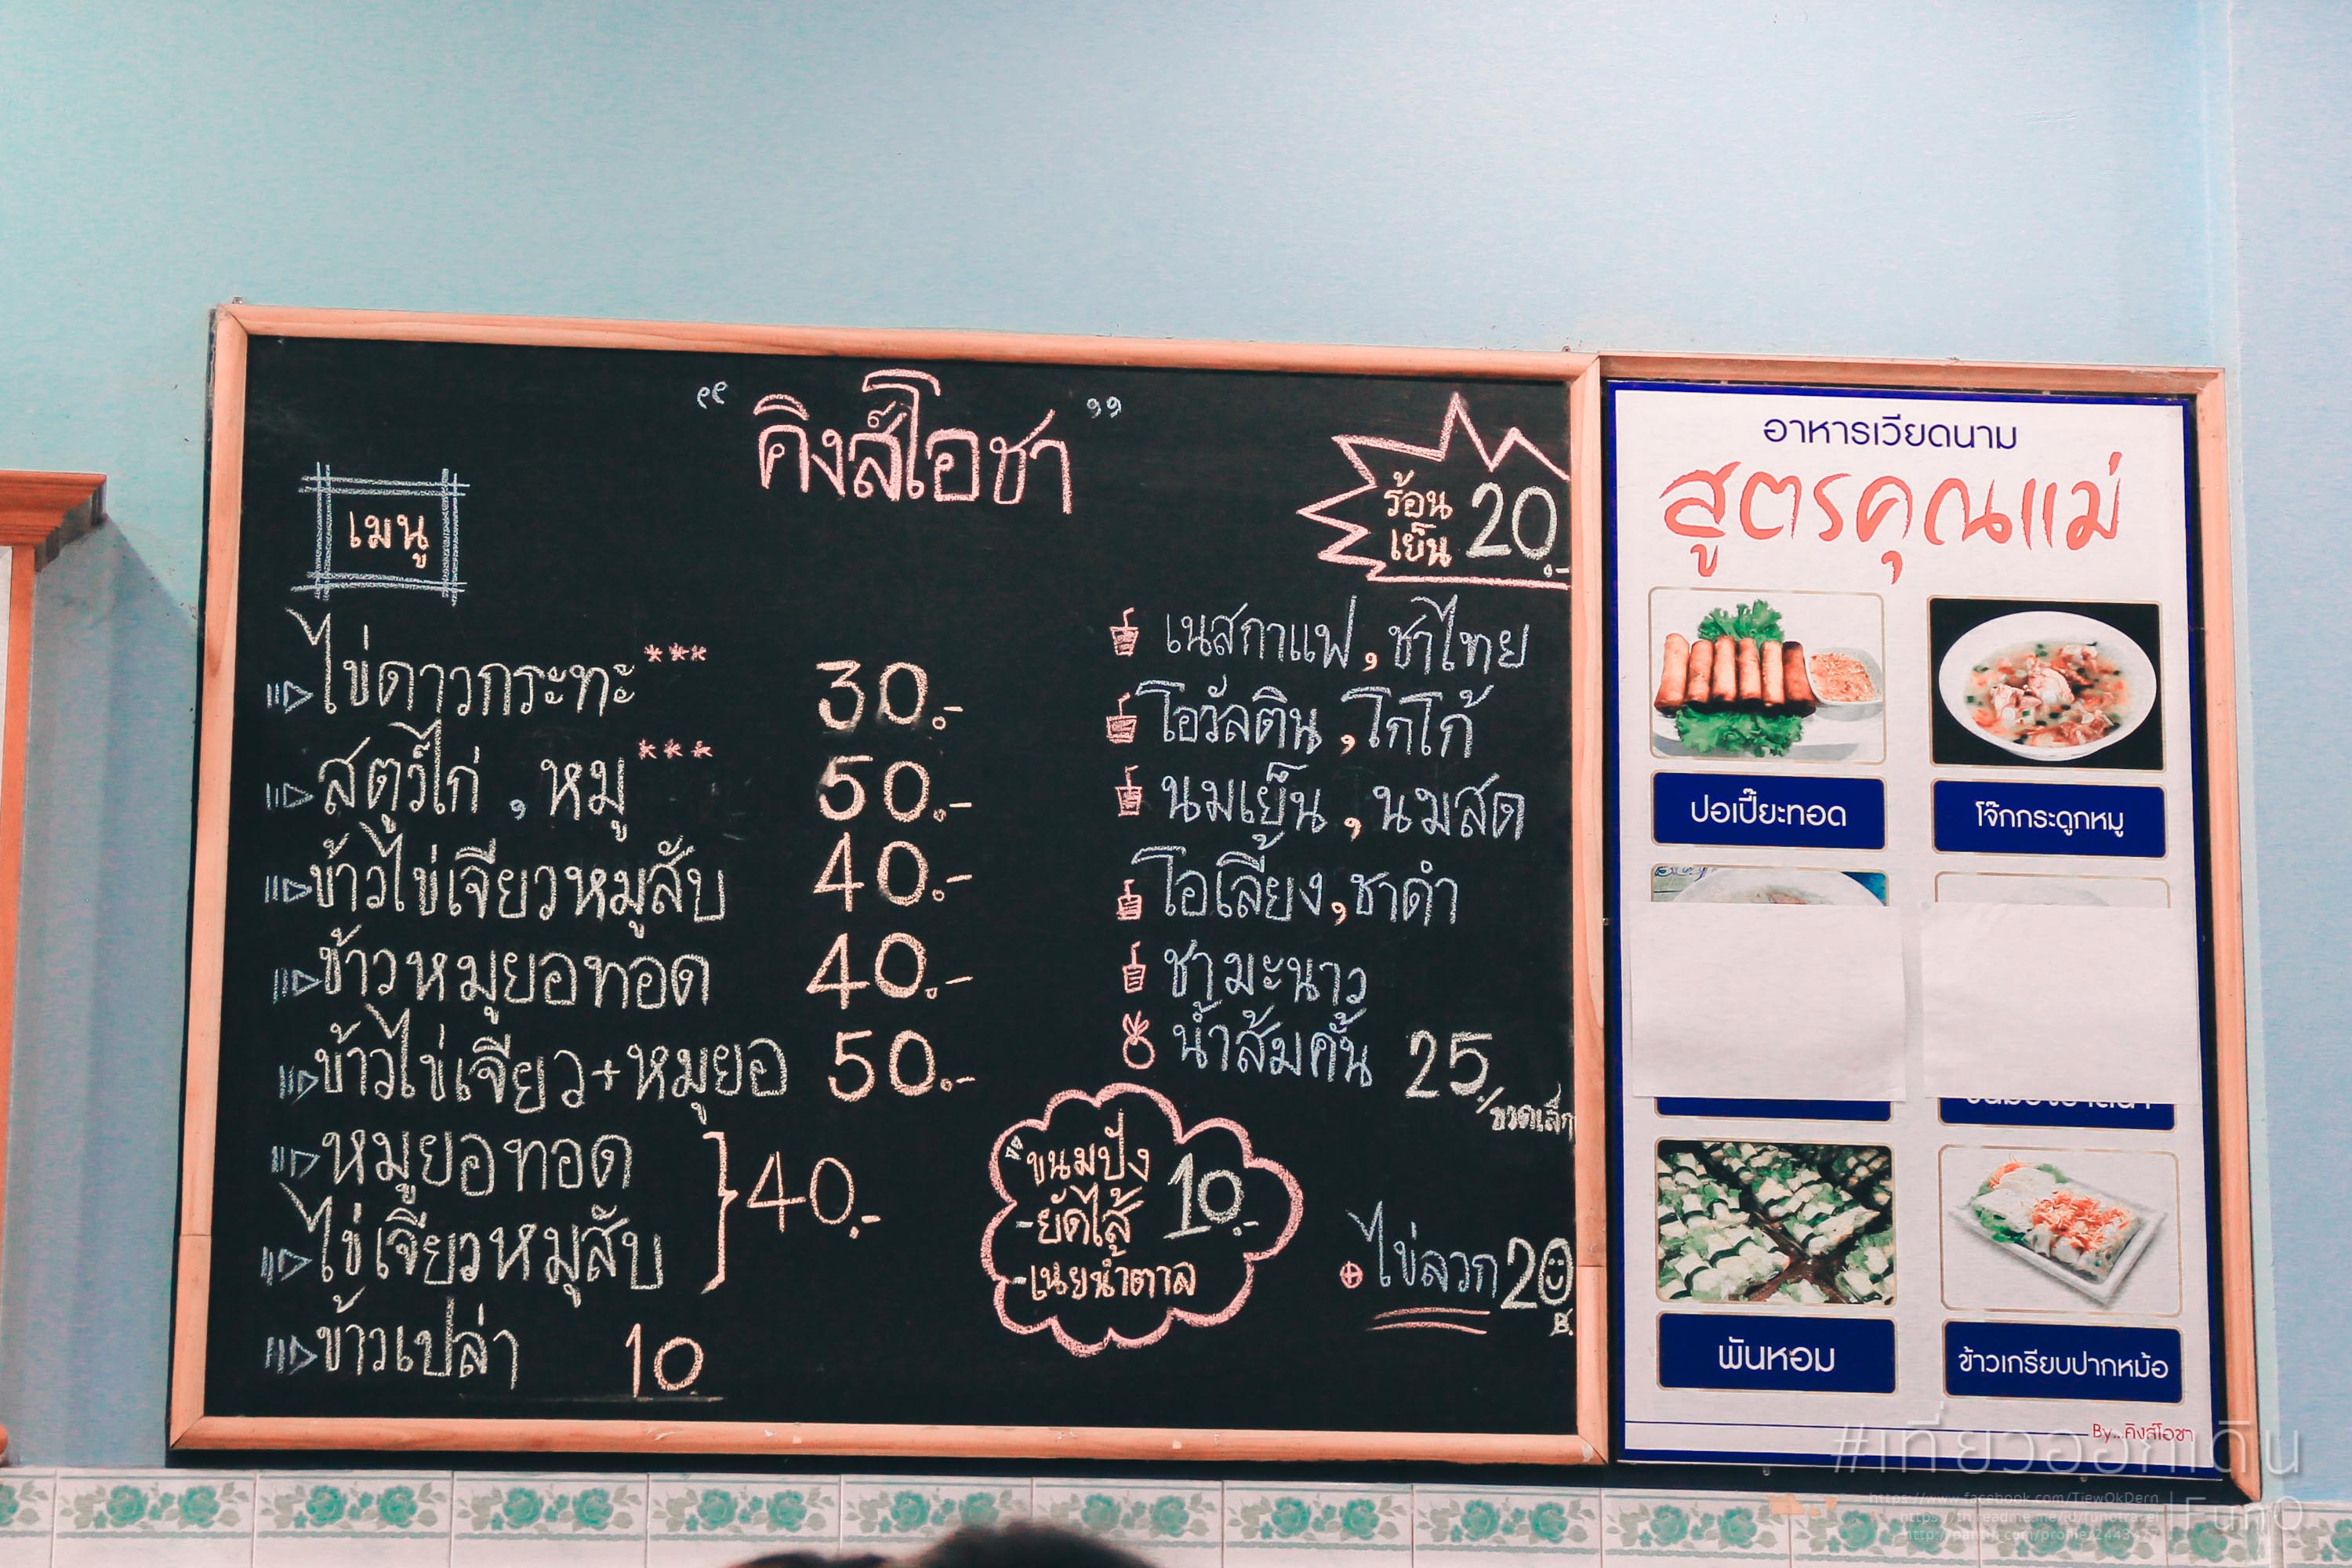 “คิงส์โอชา”
เมนู
ไข่ดาวกระทะ*** 30.-
สตูว์ไก่ , หมู*** 50.-
ข้าวไข่เจียวหมูสับ 40.-
ข้าวหมูยอทอด 40.-
ข้าวไข่เจียว+หมูยอ 50.-
หมูยอทอด
ไข่เจียวหมูสับ } 40.-
ข้าวเปล่า 10
ร้อน
เย็น 20.-
เนสกาแฟ , ชาไทย
โอวัลติน , โกโก้
นมเย็น , นมสด
โอเลี้ยง , ชาดำ
ชามะนาว
น้ำส้มคั้น 25.-/ขวดเล็ก
ขนมปัง
-ยัดไส้ 10.-
-เนยน้ำตาล
ไข่ลวก 20 B.
อาหารเวียดนาม
สูตรคุณแม่
ปอเปี๊ยะทอด
โจ๊กกระดูกหมู
พันหอม
ข้าวเกรียบปากหม้อ
By...คิงส์โอชา
#เที่ยวออกเดิน
https://www.facebook.com/TiewOkDern
https://th.readme.me/id/funotravel
FunO